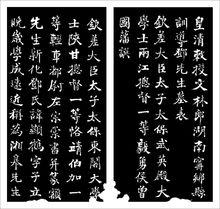 皇清敕授文林郎湖南寧鄉縣
訓導鄧先生墓表
欽差大臣太子太保武英殿大
學士兩江總督一等毅勇侯曾
國藩譔
欽差大臣太子太保東閣大學
士陝甘總督一等恪靖伯加一
等輕車都尉左宗棠書丹篆額
先生新化鄧氏諱顯鶴字子立
晚歲學成遠近稱為湘皋先生